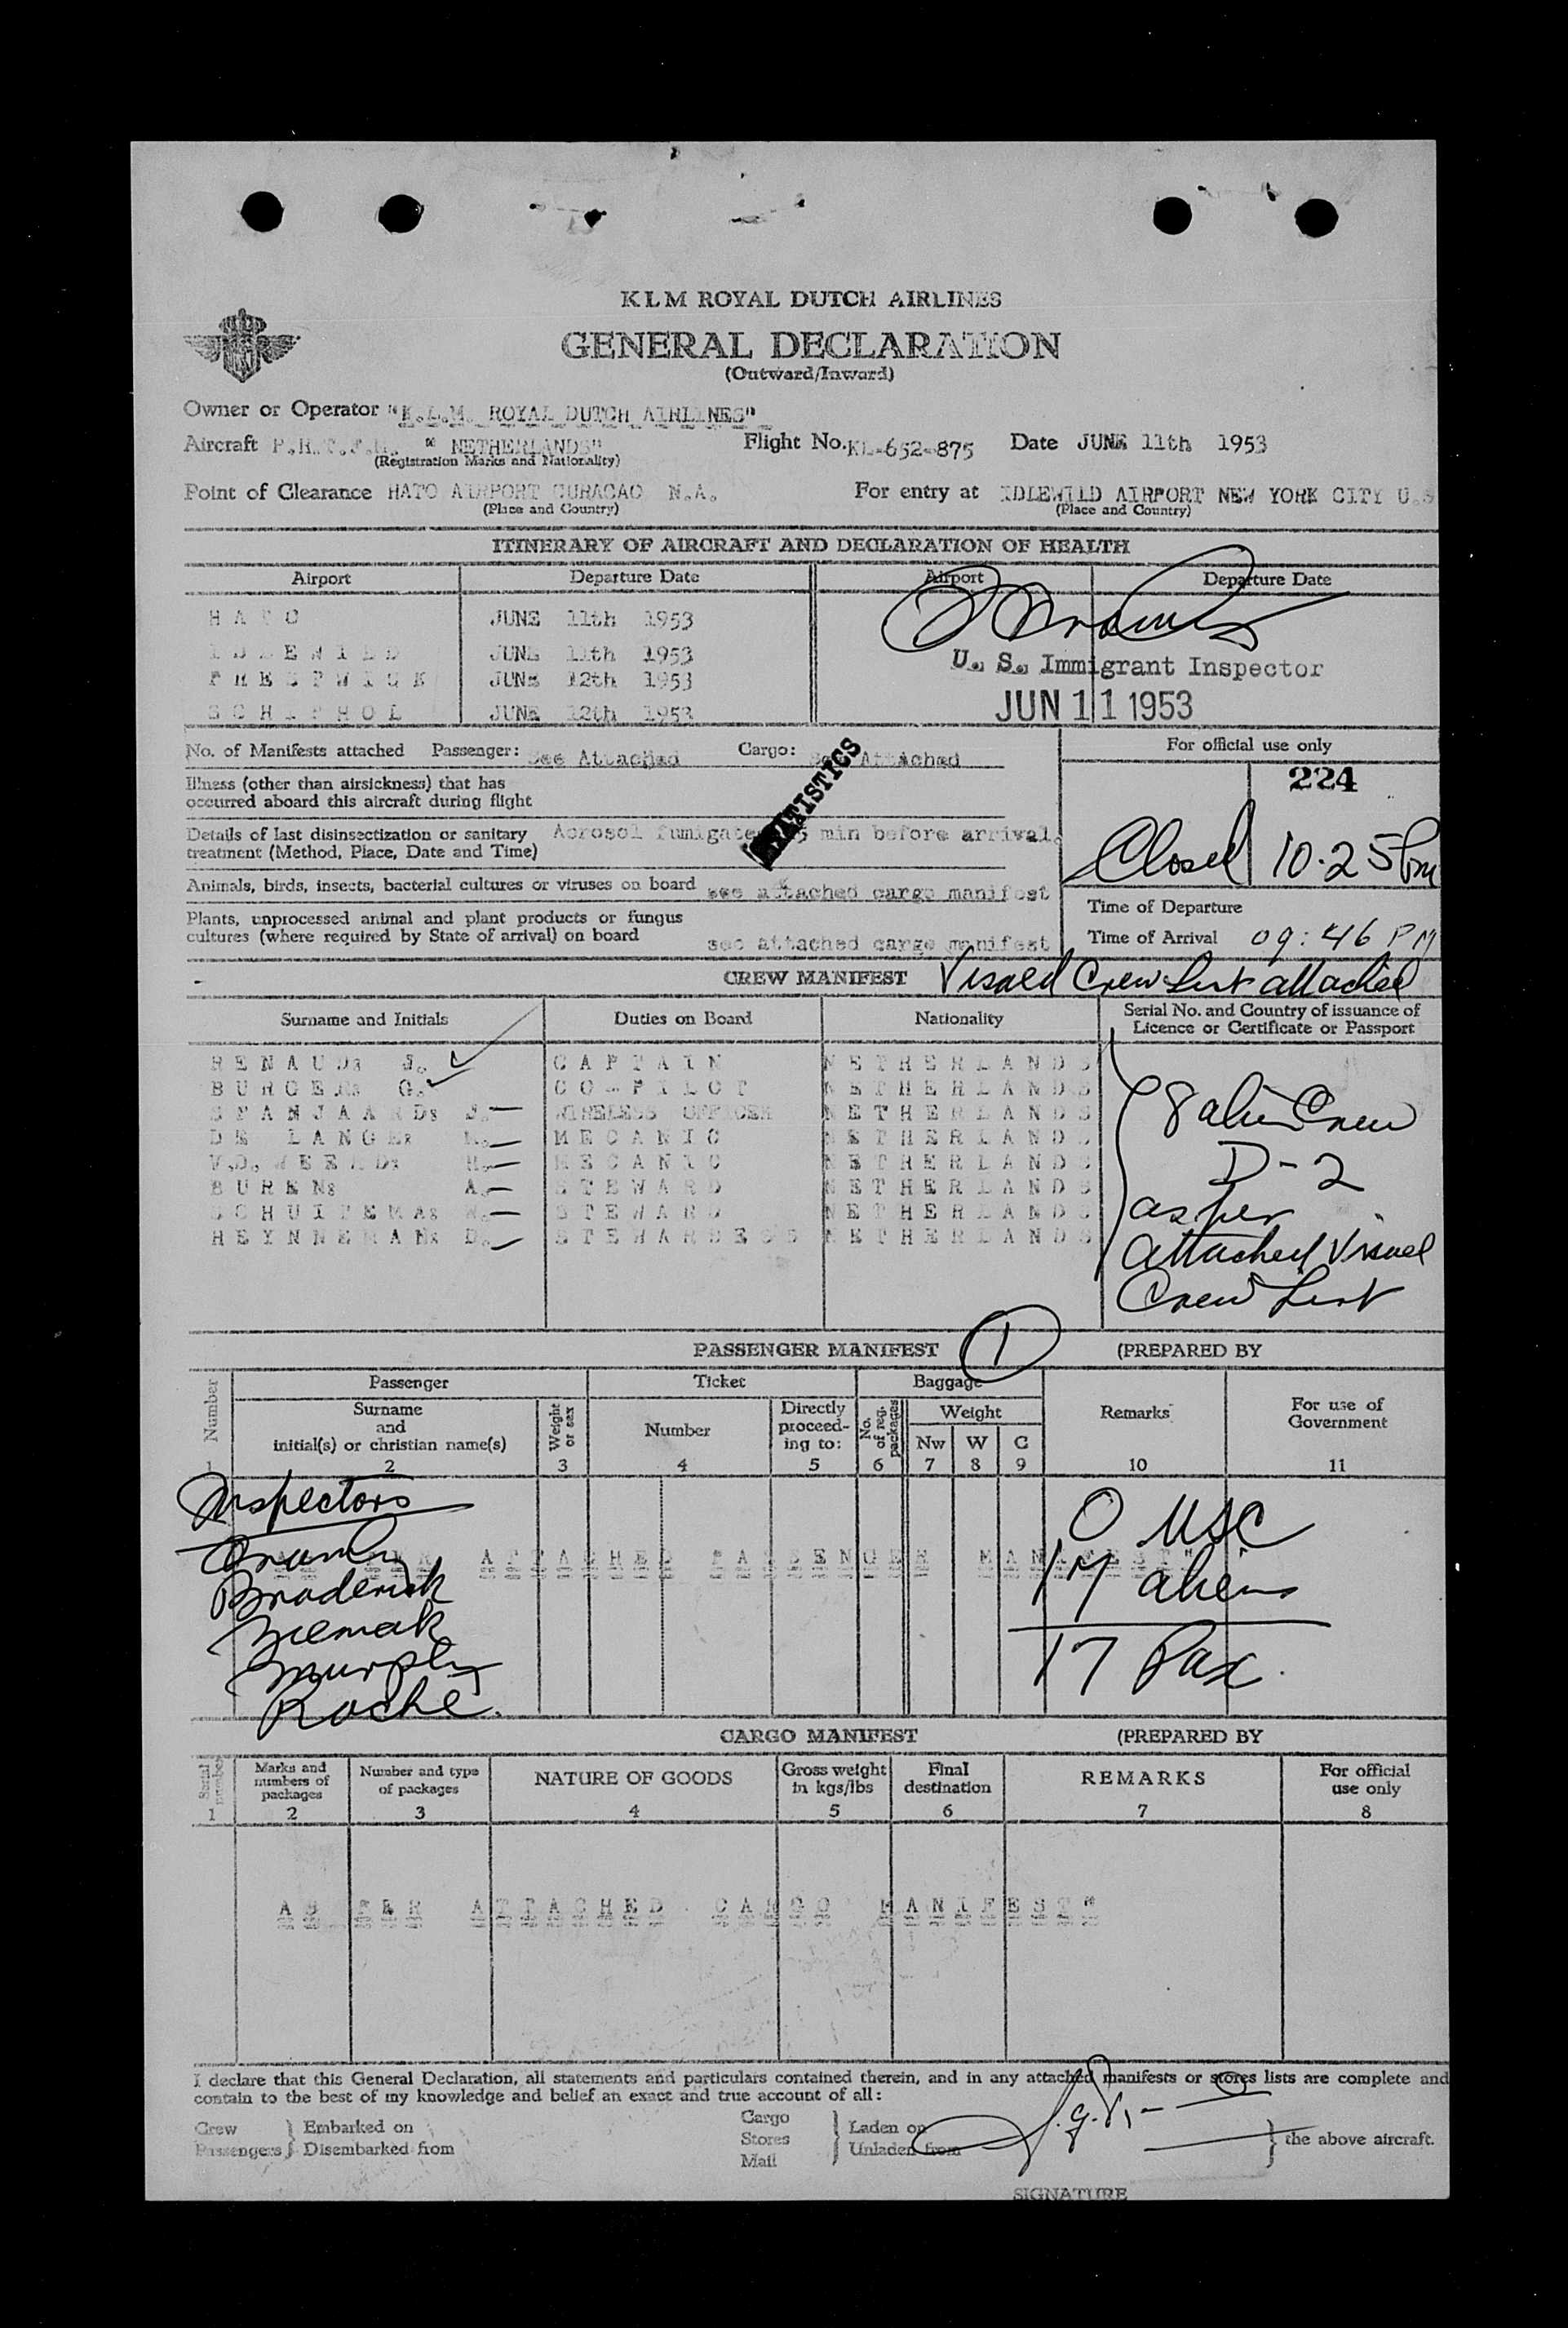 KLM ROYAL DUTCH AIRLINES
GENERAL DECLARATION
(Outward/Inward)
Owner or Operator "K.L.M. ROYAL DUTCH AIRLINES"
Aircraft P.H.T.F. " NETHERLANDS" Flight No. KL-652-875 Date JUNE 11th 1953
(Registration Marks and Nationality)
Point of Clearance HATO AIRPORT CURACAO N.A. For entry at IDLEWILD AIRPORT NEW YORK CITY U.S
(Place and Country) (Place and Country)
ITINERARY OF AIRCRAFT AND DECLARATION OF HEALTH
Airport Departure Date Airport Departure Date
HATO JUNE 11th 1953
IDLEWILD JUNE 11th 1953
U. S. Immigrant Inspector
PRESTWICK JUNE 12th 1953
SCHIPHOL JUNE 12th 1953
JUN 11 1953
No. of Manifests attached Passenger: See Attached Cargo: See Attached
For official use only
224
STATISTICS
Illness (other than airsickness) that has
occurred aboard this aircraft during flight
Details of last disinsectization or sanitary Aerosol fumigated min before arrival.
treatment (Method, Place, Date and Time)
Closed 10.25 pm
Animals, birds, insects, bacterial cultures or viruses on board see attached cargo manifest
Plants, unprocessed animal and plant products or fungus
cultures (where required by State of arrival) on board see attached cargo manifest
Time of Departure
Time of Arrival 09:46 PM
CREW MANIFEST Visaed Crew List attached
Surname and Initials Duties on Board Nationality Serial No. and Country of issuance of
Licence or Certificate or Passport
RENAUD: J. CAPTAIN NETHERLANDS
BURGER: G. CO-PILOT NETHERLANDS
SPANJAARD: J. WIRELESS OFFICER NETHERLANDS
DE LANGE: MECANIC NETHERLANDS
V.D. WEERD: H. MECANIC NETHERLANDS
BUREN: A. STEWARD NETHERLANDS
SCHUITEMA: W. STEWARD NETHERLANDS
HEYNNEMAN: D. STEWARDESS NETHERLANDS
8 alien Crew
D-2
as per
attached Visaed
Crew List
PASSENGER MANIFEST 1 (PREPARED BY
Number Passenger Ticket Baggage Remarks For use of Government
Surname
and
initial(s) or christian name(s)
Weight or sex
Number
Directly
proceed-
ing to:
No. of reg. packages
Weight
Nw W C
1 2 3 4 5 6 7 8 9 10 11
Inspectors
Broderick
Murphy
Roche.
AS PER ATTACHED PASSENGER MANIFEST"
0 USC
17 aliens
17 Pax.
CARGO MANIFEST (PREPARED BY
Serial number
Marks and
numbers of
packages
Number and type
of packages
NATURE OF GOODS
Gross weight
in kgs/lbs
Final
destination
REMARKS
For official
use only
1 2 3 4 5 6 7 8
AS PER ATTACHED CARGO MANIFEST"
I declare that this General Declaration, all statements and particulars contained therein, and in any attached manifests or stores lists are complete and
contain to the best of my knowledge and belief an exact and true account of all:
Crew Embarked on
Passengers Disembarked from
Cargo
Stores
Mail
Laden on
Unladen from
the above aircraft.
SIGNATURE